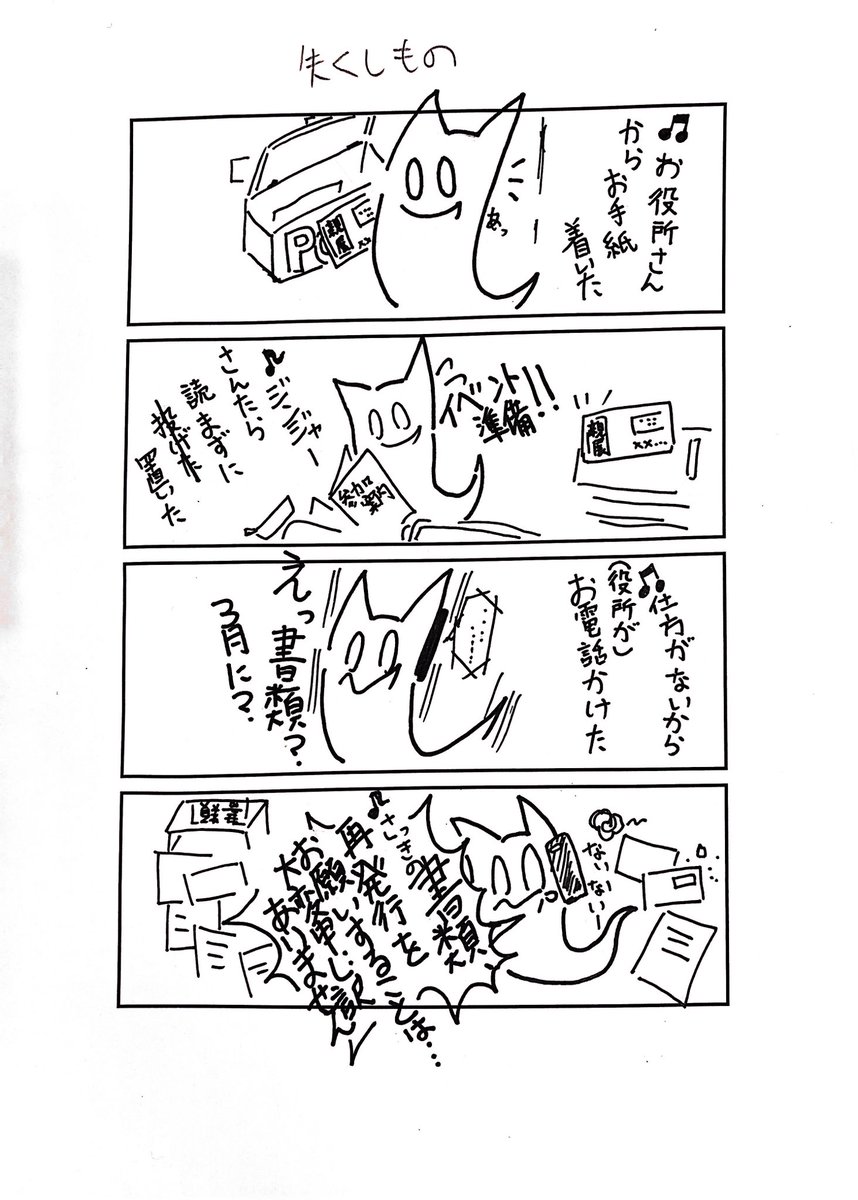 失くしもの
♫お役所さん
からお手紙
着いた
あっ
親展
イベント
準備!!
参加
案内
親展
××…
♪ジンジャー
さんたら
読まずに
投げ
置いた
♫仕方がないから
(役所が)
お電話かけた
えっ書類?
3月に?
ないないー
♪さっきの
書類
再発行を
お願いすることは…
大変申し訳
ありません